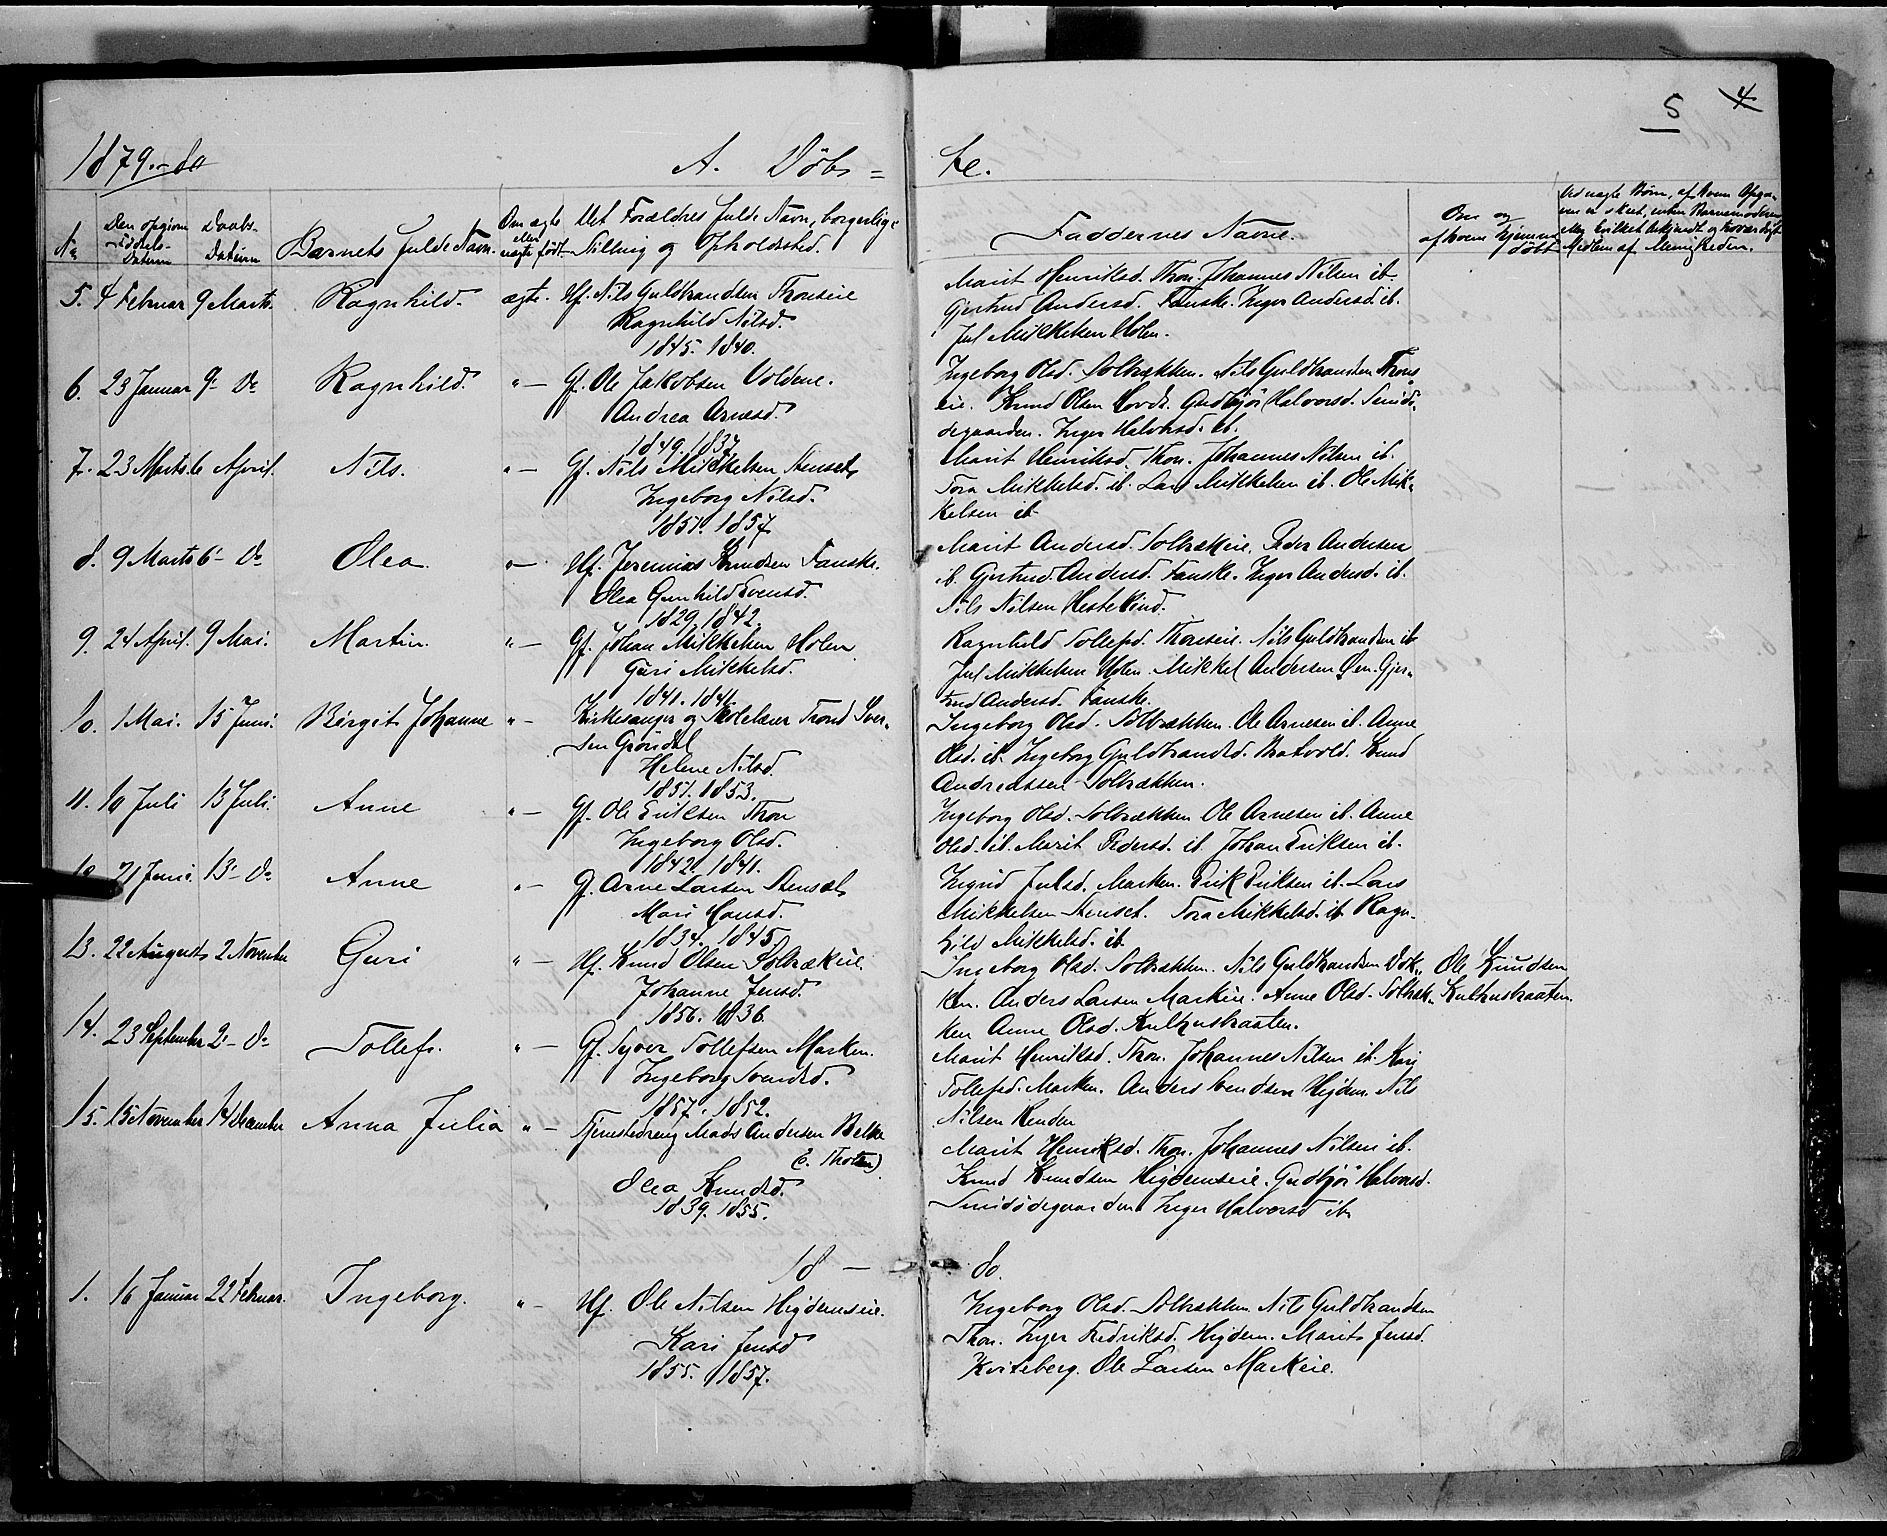 5 4
1879.-80
A. Døbs = te.
No
Den opgivne Fødsels-Datum
Daabs-Datum
Barnets fulde Navn.
Om ægte eller uægte født
Det Forældres fulde Navn, borgerlige Stilling og Opholdssted.
Faddernes Navne.
Om og af hvem hjemmedøbt
5. 4 Februar 9 Marts. Ragnhild. ægte. Hf. Nils Guldbrandsen Thoneie
Ragnhild Nilsd.
1845. 1840.
Marit Henriksd. Thon. Johannes Nilsen ib.
Gjertrud Andersd. Fanske. Inger Andersd. ib.
Jul Mikkelsen Holen.
6. 23 Januar 9- Do Ragnhild. "— Gf. Ole Jakobsen Voldene.
Andrea Arnesd.
1849. 1837
Ingeborg Olsd. Solbrækken. Nils Guldbrandsen Thons
eie. Knud Olsen Hovde. Gudbjør Halvorsd. Smids-
degaarden. Inger Halvorsd. ib.
7. 23 Marts 6 April. Nils. "— Gf. Nils Mikkelsen Stenset
Ingeborg Nilsd.
1851. 1857
Marit Henriksd. Thon. Johannes Nilsen ib.
Tora Mikkelsd. ib. Lars Mikkelsen ib. Ole Mik-
kelsen ib
8. 9 Marts 6- Do Olea. "— Hf. Jeremias Knudsen Fanske.
Olea Gunhild Svensd.
1829. 1842.
Marit Andersd. Solbrækeie. Peder Andersen
ib. Gjertrud Andersd. Fanske. Inger Andersd. ib.
Nils Nilsen Hestekind.
9. 24 April. 9 Mai. Martin. "— Gf. Johan Mikkelsen Holen
Guri Mikkelsd.
1841. 1841.
Ragnhild Tollefsd. Thoneeie. Nils Guldbrandsen ib
Jul Mikkelsen Holen. Mikkel Andersen Øen. Gjer-
trud Andersd. Fanske.
10. 1 Mai. 15 Juni. Birgit Johanne "— Kirkesanger og Skolelærer Trond Iver-
sen Grøndal
Helene Nilsd.
1851. 1853.
Ingeborg Olsd. Solbrækken. Ole Arnesen ib. Anne
Olsd. ib. Ingeborg Guldbrandsd. Bratvold. Knud
Andreassen Solbrækken.
11. 10 Juli 13 Juli. Anne "— Gf. Ole Eriksen Thon
Ingeborg Olsd.
1842. 1841.
Ingeborg Olsd. Solbrækken Ole Arnesen ib. Anne
Olsd. ib. Marit Pedersd. ib. Johan Eriksen ib.
12 21 Juni. 13- Do Anne "— Gf. Arne Larsen Stenset
Mari Hansd.
1834. 1845
Ingrid Julsd. Marken. Erik Eriksen ib. Lars
Mikkelsen Stenset. Tora Mikkelsd. ib. Ragn-
hild Mikkelsd. ib.
13. 22 August 2 November Guri "— Hf. Knud Olsen Solbrækeie.
Johanne Jensd.
1856. 1836.
Ingeborg Olsd. Solbrækken. Nils Guldbrandsen Dok-
ken. Anders Larsen Markeie. Anne Olsd. Solbræk-
ken Anne Olsd. Kulhusbraaten.
Ole Knudsen
Kulhusbraaten.
14. 23 September 2- Do Tollef. "— Gf. Syver Tollefsen Marken.
Ingeborg Svendsd.
1857. 1852.
Marit Henriksd. Thon. Johannes Nilsen ib. Kari
Tollefsd. Marken. Anders Svendsen Høgden. Nils
Nilsen Renden
15. 15 November 14 December Anna Julia "— Tjenestedreng Mads Andersen Belke
(V. Thoten)
Olea Knudsd.
1839. 1855.
Marit Henriksd. Thon. Johannes Nilsen ib.
Knud Knudsen Høgdenseie. Gudbjør Halvorsd.
Smidsødegaarden Inger Halvorsd ib
18 — 80.
1. 16 Januar 22 Februar. Ingeborg. "— Hf. Ole Nilsen Høgdenseie.
Kari Jensd
1855. 1857.
Ingeborg Olsd. Solbrækken. Nils Guldbrandsen
Thon. Inger Fredriksd. Høgden. Marit Jensd.
Kviteberg. Ole Larsen Markeie.